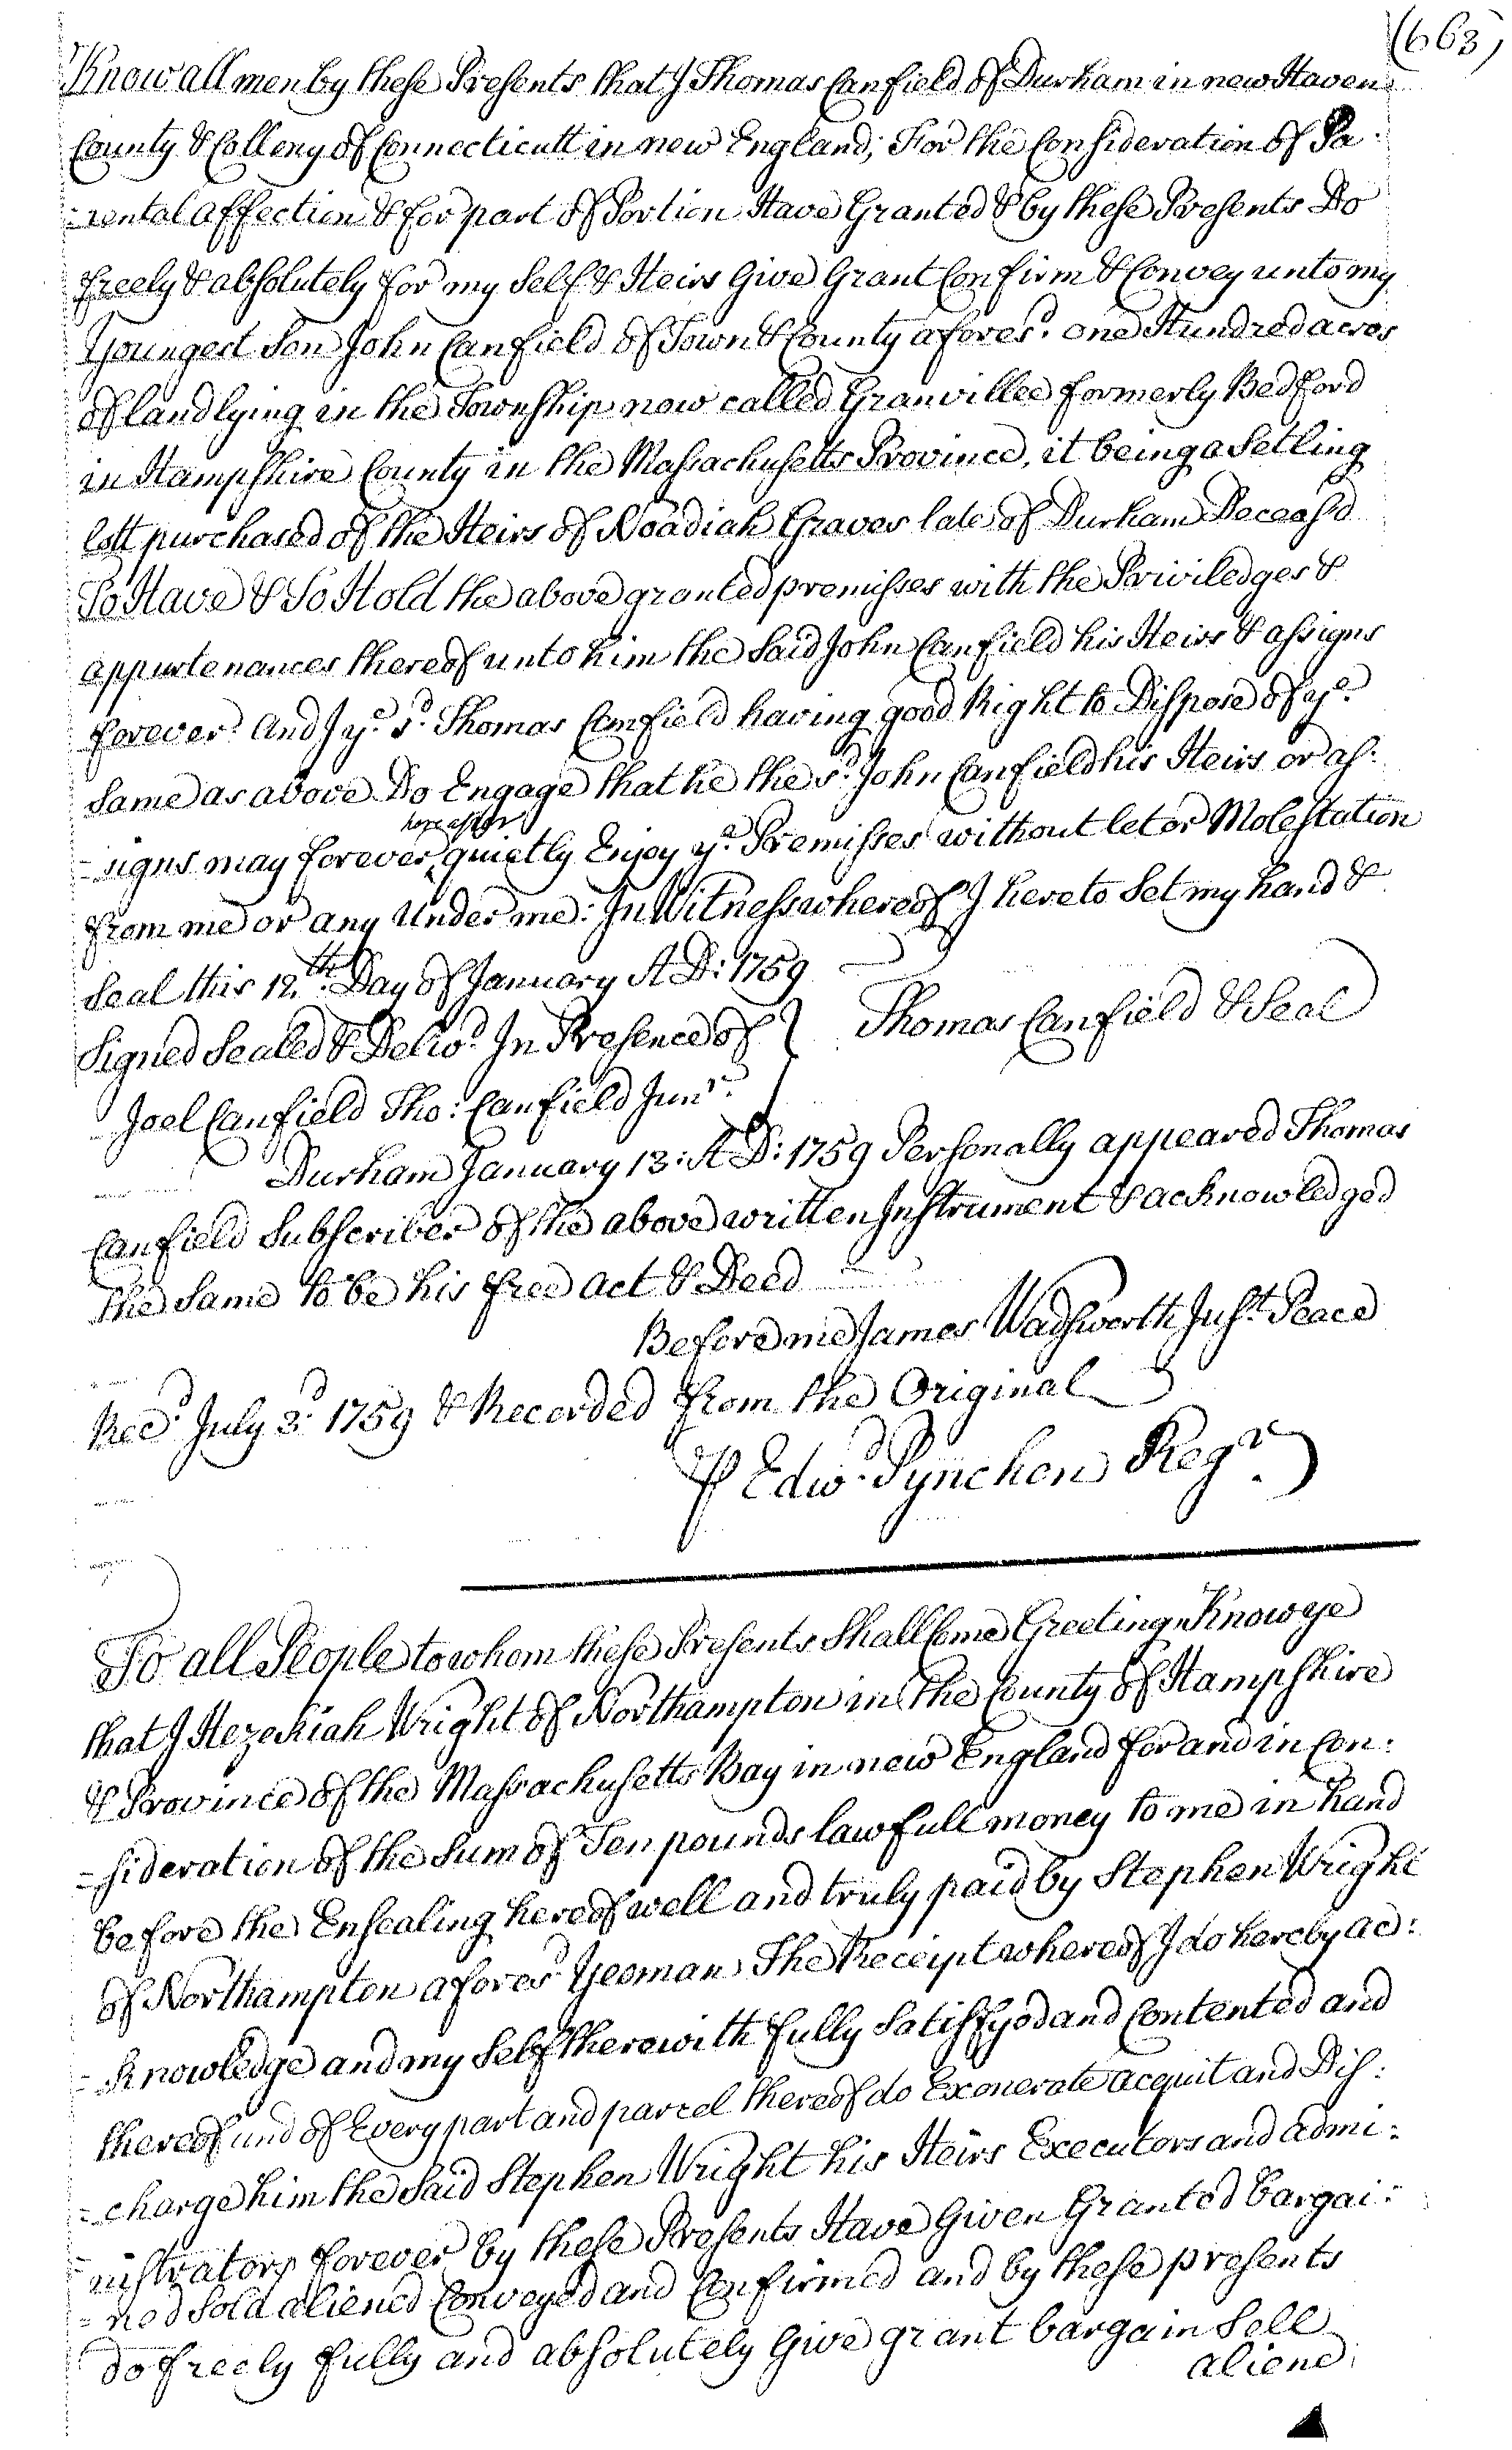 (663)
Know all men by these Presents that I Thomas Canfield of Durham in new Haven
County & Collony of Connecticutt in new England; For the Consideration of Pa-
-rental affection & for part of Portion Have Granted & by these Presents Do
freely & absolutely for my Self & Heirs Give Grant Confirm & Convey unto my
Youngest Son John Canfield of Town & County afores.d one Hundred acres
of land lying in the Township now called Granvillee formerly Bedford
in Hampshire County in the Massachusetts Province, it being a Setling
lott purchased of the Heirs of Noadiah Graves late of Durham Deceas'd
To Have & To Hold the above granted premisses with the Priviledges &
appurtenances thereof unto him the Said John Canfield his Heirs & assigns
forever. And I y.e s.d Thomas Canfield having good Right to Dispose of y.e
Same as above Do Engage that he the s.d John Canfield his Heirs or as:
-signs may forever hereafter quietly Enjoy y.e Premisses without let or Molestation
from me or any Under me: In Witness whereof I hereto Set my hand &
Seal this 12.th Day of January A D: 1759
Signed Sealed & Deliv.d In Presence of } Thomas Canfield & Seal
Joel Canfield Tho: Canfield Jun.r
Durham January 13: A D: 1759 Personally appeared Thomas
Canfield Subscriber of the above written Instrument & acknowledged
the Same to be his free act & Deed
Before me James Wadsworth Just. Peace
Rec.d July 3.d 1759 & Recorded from the Original
P Edw.d Pynchon Reg.r
To all People to whom these Presents Shall Come Greeting Know ye
that I Hezekiah Wright of Northampton in the County of Hampshire
& Province of the Massachusetts Bay in new England for and in Con:
-sideration of the Sum of Ten pounds lawfull money to me in hand
before the Ensealing hereof well and truly paid by Stephen Wright
of Northampton afores.d Yeoman The Receipt whereof I do hereby ac:
-knowledge and my Self therewith fully Satisfyed and Contented and
thereof and of Every part and parcel thereof do Exonerate acquit and Dis:
-charge him the Said Stephen Wright his Heirs Executors and admi:
-nistrators forever by these Presents Have Given Granted bargai:
-ned Sold aliened Conveyed and Confirmed and by these presents
do freely fully and absolutely Give grant bargain Sell
aliene